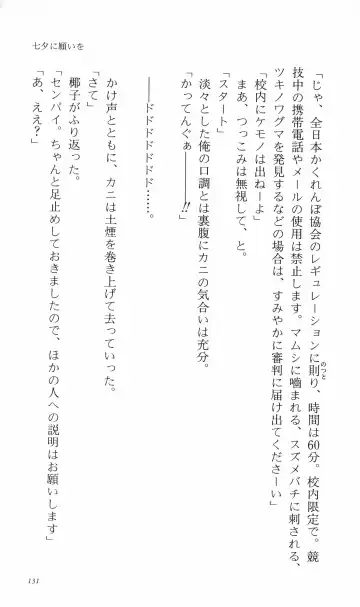 七夕に願いを
「じゃ、全日本かくれんぼ協会のレギュレーションに則り、時間は60分。校内限定で。競
のっと
技中の携帯電話やメールの使用は禁止します。マムシに噛まれる、スズメバチに刺される、
ツキノワグマを発見するなどの場合は、すみやかに審判に届け出てくださーい」
「校内にケモノは出ねーよ」
まあ、つっこみは無視して、と。
「スタート」
淡々とした俺の口調とは裏腹にカニの気合いは充分。
「かってんぐぁ――――!!」
――ドドドドドドド……。
かけ声とともに、カニは土煙を巻き上げて去っていった。
「さて」
椰子がふり返った。
「センパイ。ちゃんと足止めしておきましたので、ほかの人への説明はお願いします」
「あ、ええ?」
131